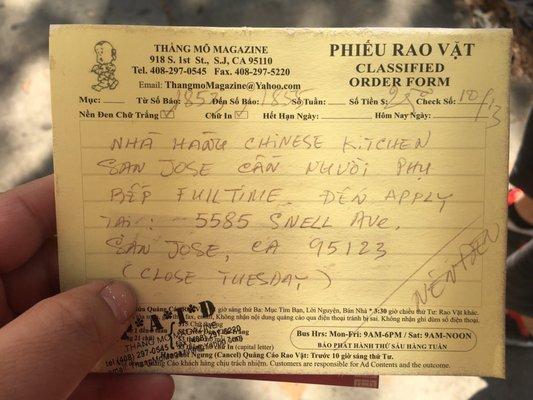 THẰNG MÕ MAGAZINE
918 S. 1st St., S.J, CA 95110
Tel. 408-297-0545 Fax. 408-297-5220
Email: ThangmoMagazine@Yahoo.com
PHIẾU RAO VẶT
CLASSIFIED
ORDER FORM
Mục: Từ Số Báo: 1852 Đến Số Báo: 1855 Số Tuần: Số Tiền $ Check Số: 10/13
Nền Đen Chữ Trắng Chữ In Hết Hạn Ngày: Hôm Nay Ngày:
NHÀ HÀNG CHINESE KITCHEN
SAN JOSE CẦN NGƯỜI PHỤ
BẾP FULLTIME ĐẾN APPLY
TẠI: 5585 SNELL AVE,
SAN JOSE, CA 95123
(CLOSE TUESDAY)
NỀN ĐEN
Quảng Cáo Rao Vặt: Mục Tìm Bạn, Lời Nguyện, Bán Nhà * 3:30 giờ sáng thứ Tư: Rao Vặt khác.
Không nhận quảng cáo qua điện thoại tránh bị sai. Không nhận ghi dùm số điện thoại.
Bus Hrs: Mon-Fri: 9AM-6PM / Sat: 9AM-NOON
BÁO PHÁT HÀNH THỨ SÁU HÀNG TUẦN
THANG MO
tel (408) 297-0545
Ngưng (Cancel) Quảng Cáo Rao Vặt: Trước 10 giờ sáng thứ Tư.
khách hàng chịu trách nhiệm. Customers are responsible for Ad Contents and the outcome.